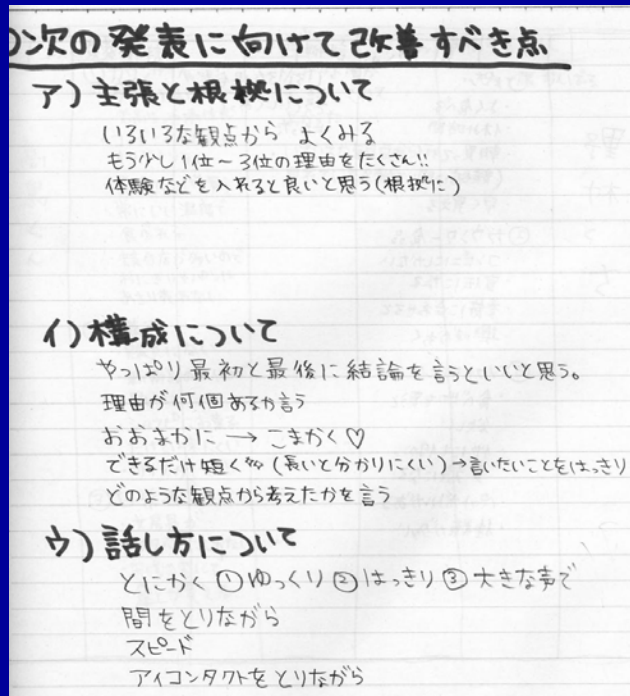 ○次の発表に向けて改善すべき点
ア)主張と根拠について
いろいろな観点から よくみる
もう少し1位～3位の理由をたくさん!!
体験などを入れると良いと思う(根拠に)
イ)構成について
やっぱり最初と最後に結論を言うといいと思う。
理由が何個あるか言う
おおまかに → こまかく♡
できるだけ短く(長いと分かりにくい)→言いたいことをはっきり
どのような観点から考えたかを言う
ウ)話し方について
とにかく ①ゆっくり ②はっきり ③大きな声で
間をとりながら
スピード
アイコンタクトをとりながら